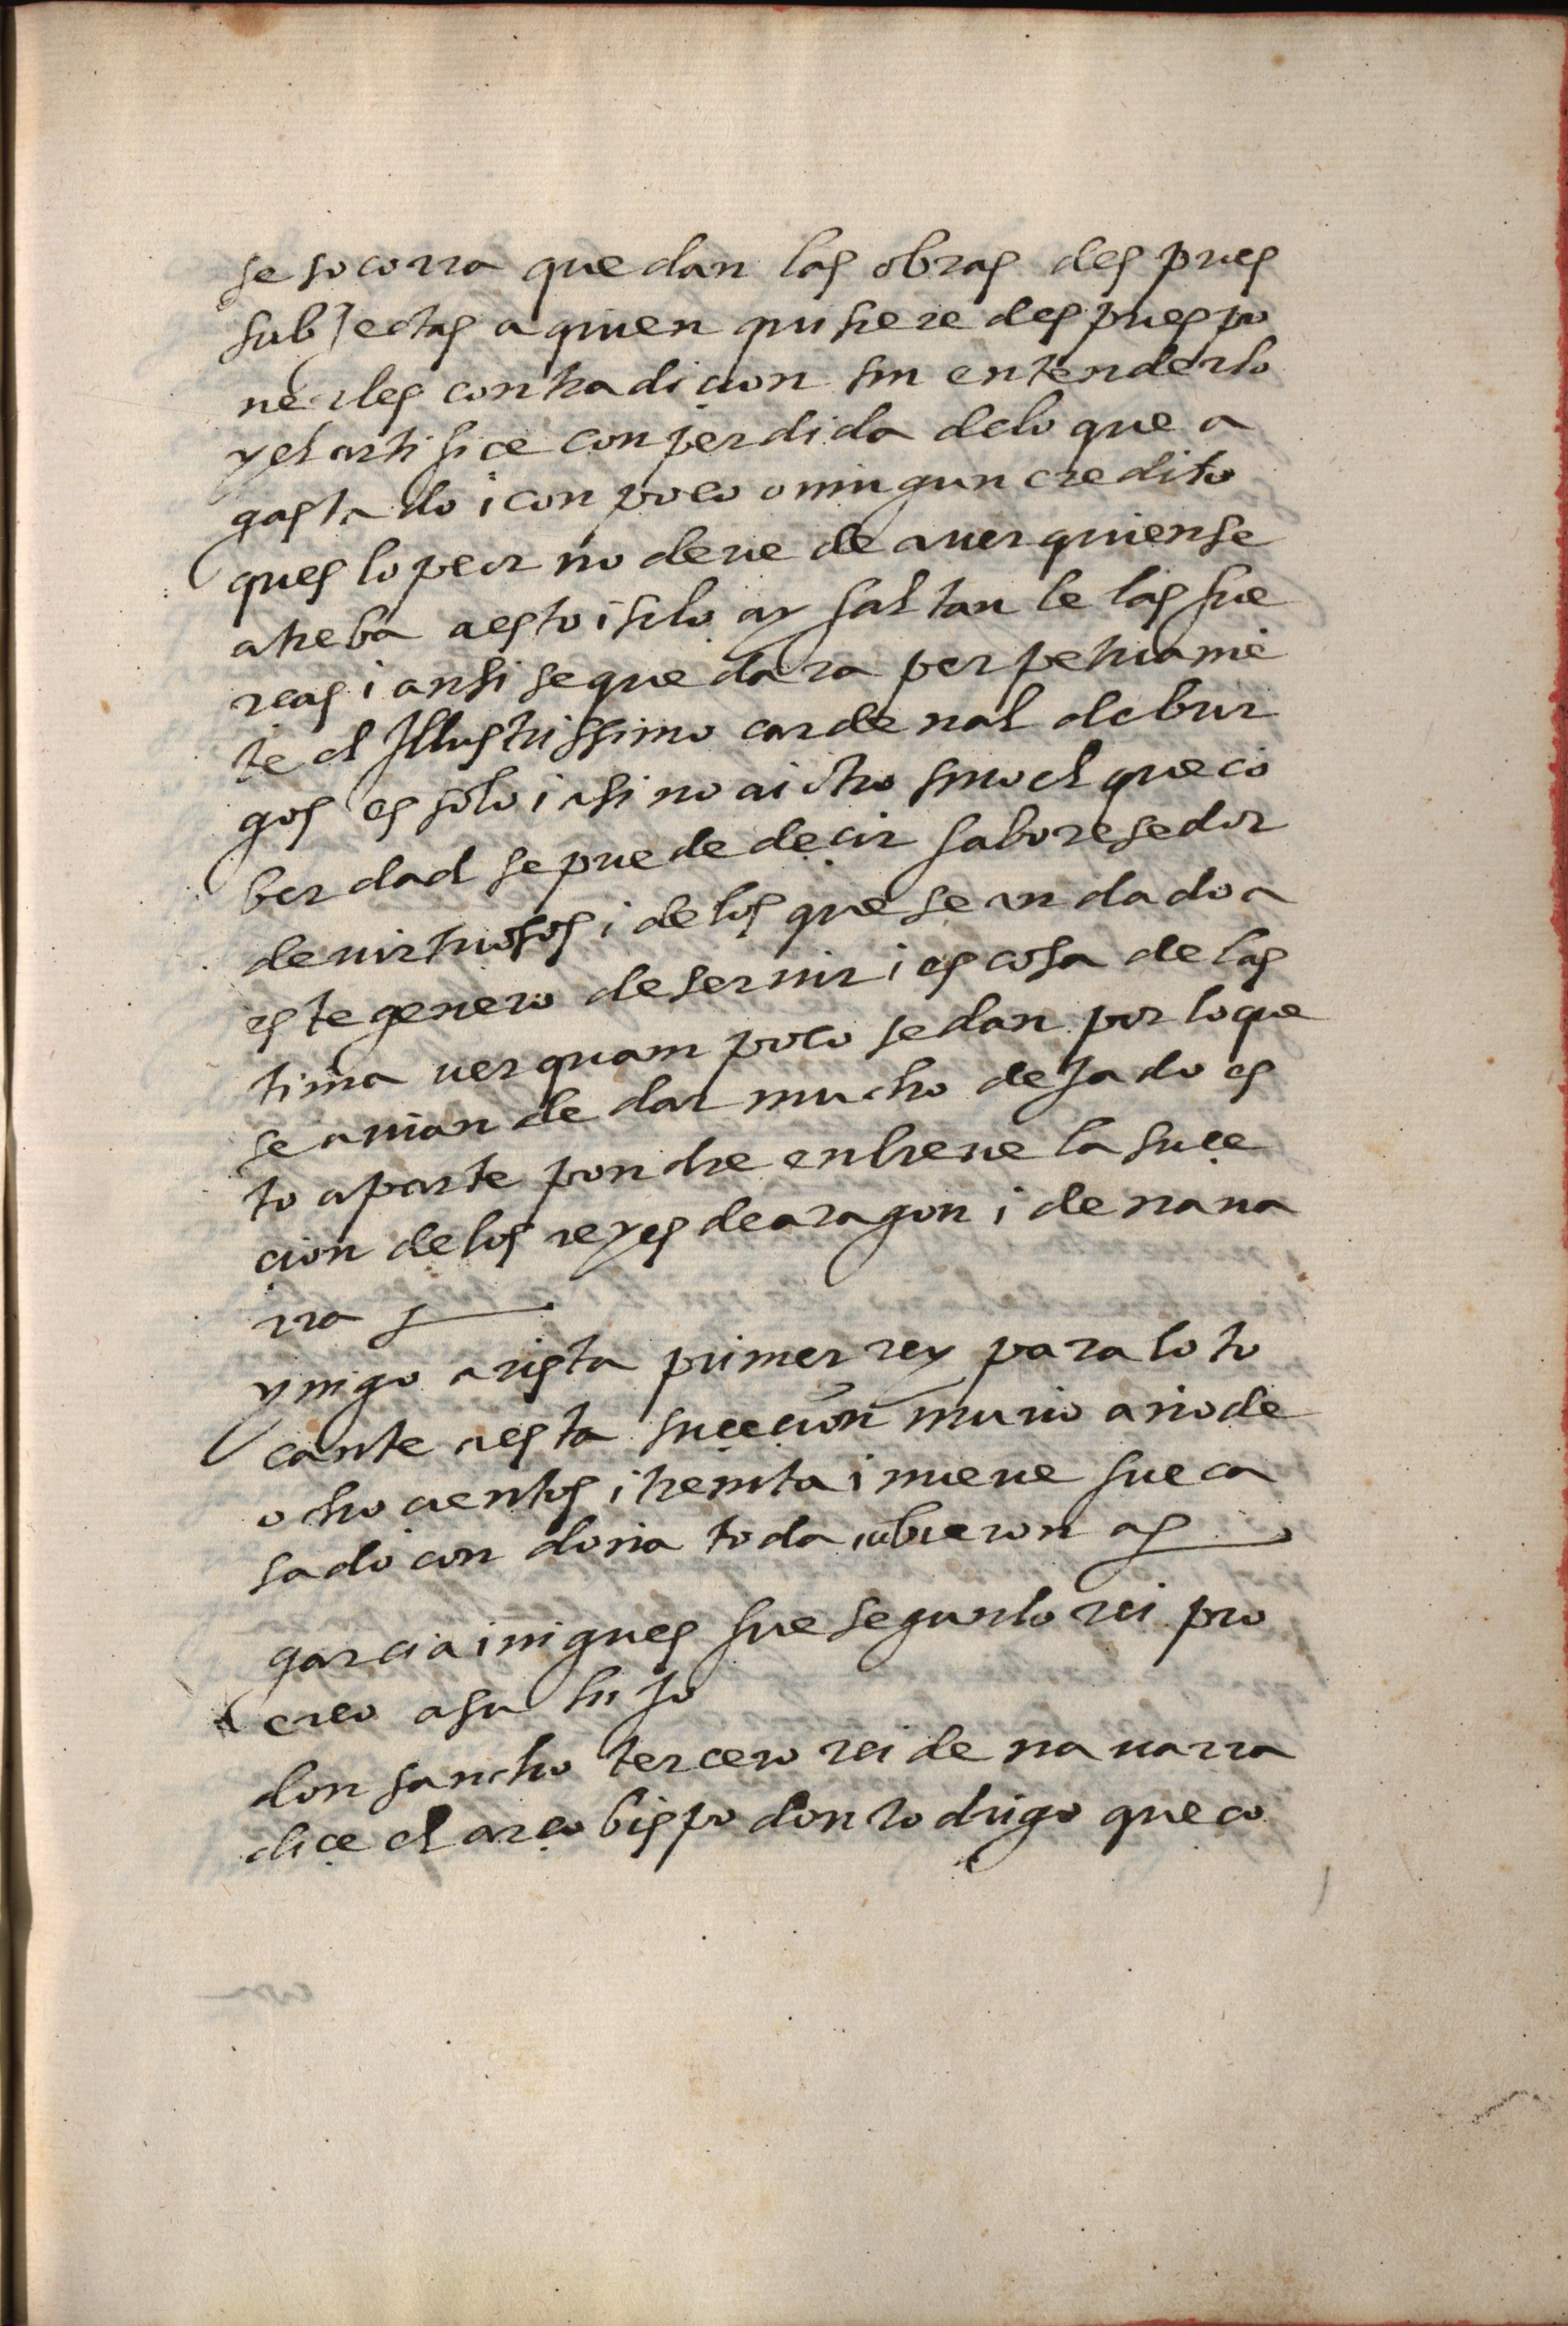 se socorra quedan las obras despues
subjectas a quien quisiere despues po
nerles contradicion sin entenderlo
y el artifice con perdida de lo que a
gastado i con poco o ningun credito
ques lo peor no deve de aver quien se
atreba a esto i si lo ay faltan le las fue
rças i ansi se quedara perpetuamē
te el Illustrissimo cardenal de bur
gos es solo i asi no ai otro sino el que cō
berdad se puede deçir faboresedor
de virtuosos i de los que se an dado a
este genero de servir i es cosa de las
tima ver quam poco se dan por lo que
se avian de dar mucho dejado es
to aparte pondre en breve la suçe
çion de los reyes de aragon i de nava
rra
ynigo arista primer rey para lo to
cante a esta suçeçion murio año de
ochocientos i treinta i nueve fue ca
sado con doña toda ubieron a
garcia inigues fue segundo rei pro
creo a su hijo
don sancho tercero rei de navarra
diçe el arçobispo don rodrigo que co